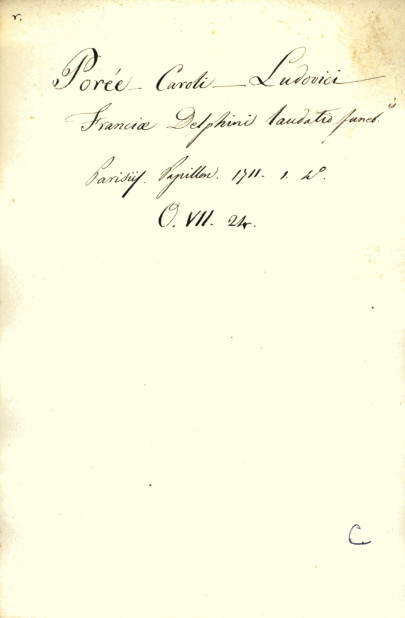 r.
Porée - Caroli - Ludovici
Franciæ Delphini laudatio funeb.is
Parisiis. Papillon. 1711. 1. 4°.
O. VII. 24.
C